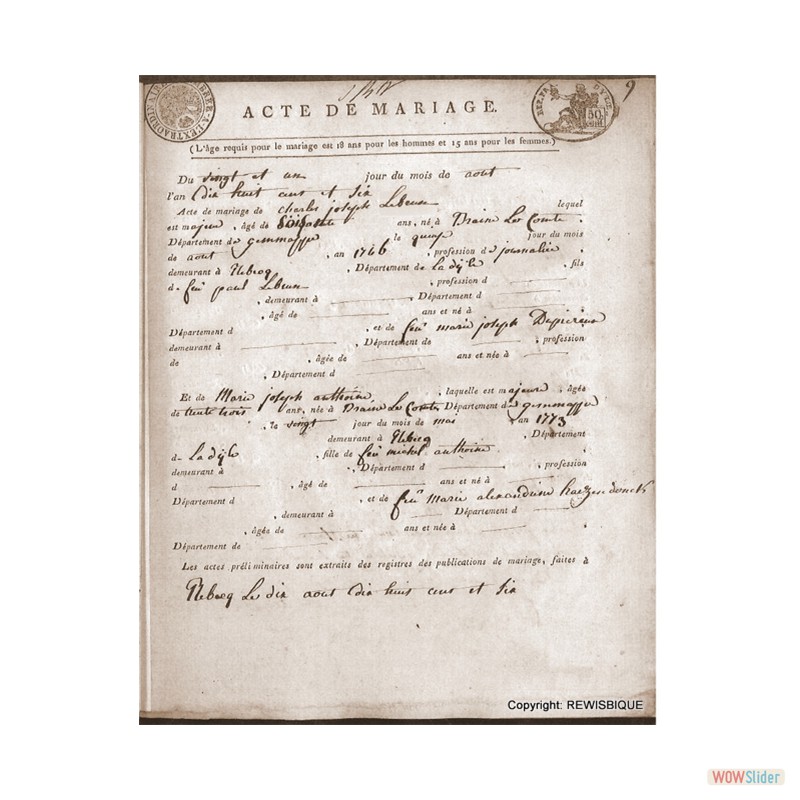 9
ACTE DE MARIAGE.
50
(L'âge requis pour le mariage est 18 ans pour les hommes et 15 ans pour les femmes.)
Du vingt et un jour du mois de aout
l'an dix huit cent et six
Acte de mariage de charles joseph Lebrun lequel
est majeur, âgé de ans, né à Braine Le Comte.
Département de gemmappe le quinze jour du mois
de aout, an 1766, profession de journalier.
demeurant à Rebecq, Département de La dijle, fils
de feu paul Lebrun, profession d
, demeurant à, Département d
, âgé de ans et né à
Département d, et de feu marie joseph
demeurant à, Département de, profession
de, âgée de ans et née à
, Département d
Et de Marie joseph anthoine, laquelle est majeure, âgée
de trente trois ans, née à Braine Le Comte, Département de gemmappe
, le vingt jour du mois de mai, an 1773
demeurant à Rebecq, Département
de La dijle, fille de feu michel anthoine
demeurant à, Département d, profession
d, âgé de ans et né à
Département d, et de feu Marie alexandrine
, demeurant à Département d
, âgée de ans et née à
Département de
Les actes préliminaires sont extraits des registres des publications de mariage, faites à
Rebecq Le dix aout dix huit cent et six
Copyright: REWISBIQUE
WOWSlider